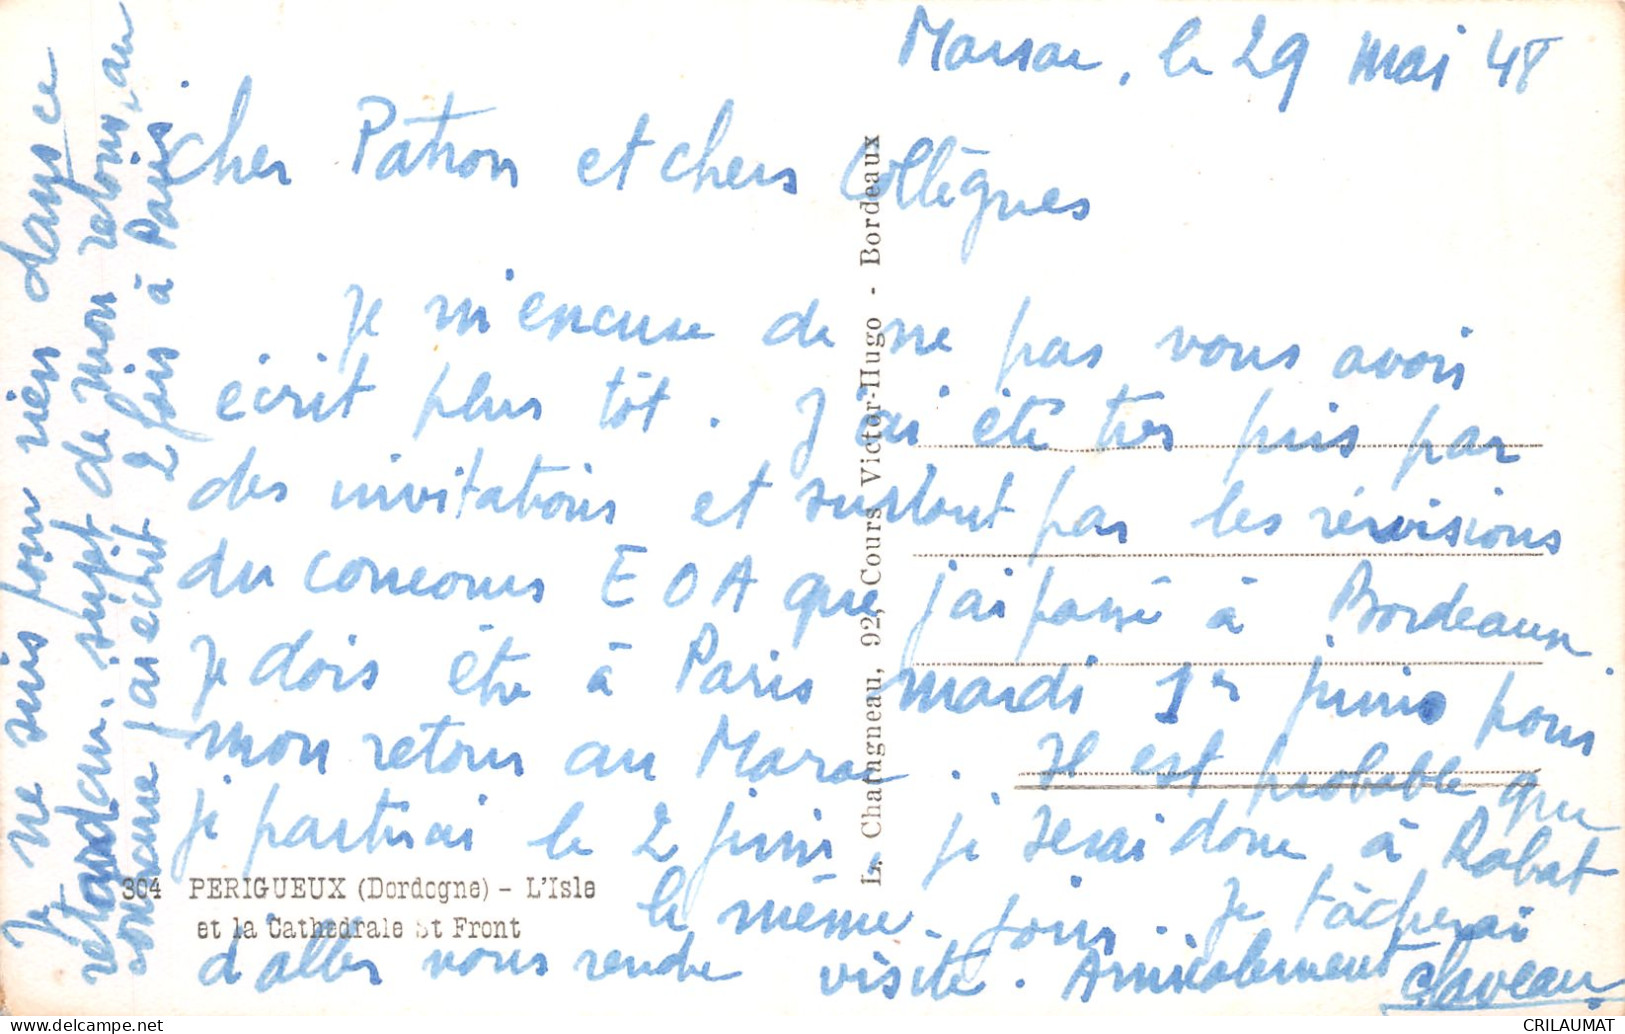 Marsac, le 29 mai 48
Cher Patron et chers Collègues
Je m'encuse de ne pas vous avoir
écrit plus tôt. J'ai été très pris par
des invitations et surtout par les révisions
du concours E O A que j'ai passé à Bordeaux.
Je dois être à Paris mardi 1er juin pour
mon retour au Maroc. Il est probable que
je partirai le 2 juin, je serai donc à Rabat
le même jour. Je tâcherai
d'aller vous rendre visite. Amicalement
Claveau
Je ne suis pour rien dans ce
retard au sujet de mon retour, au
contraire j'ai écrit 2 fois à Paris
304 PERIGUEUX (Dordogne) - L'Isle
et la Cathédrale St Front
L. Chatagneau, 92, Cours Victor-Hugo - Bordeaux
CRILAUMAT